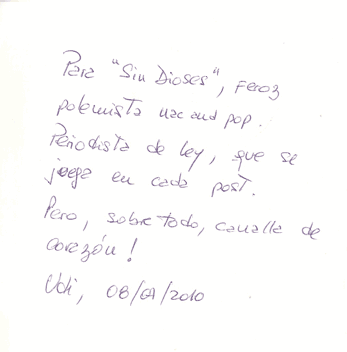 Para "Sin Dioses", Feroz
polemista nac and pop.
Periodista de ley, que se
juega en cada post.
Pero, sobre todo, canalla de
corazón!
Udi, 08/09/2010